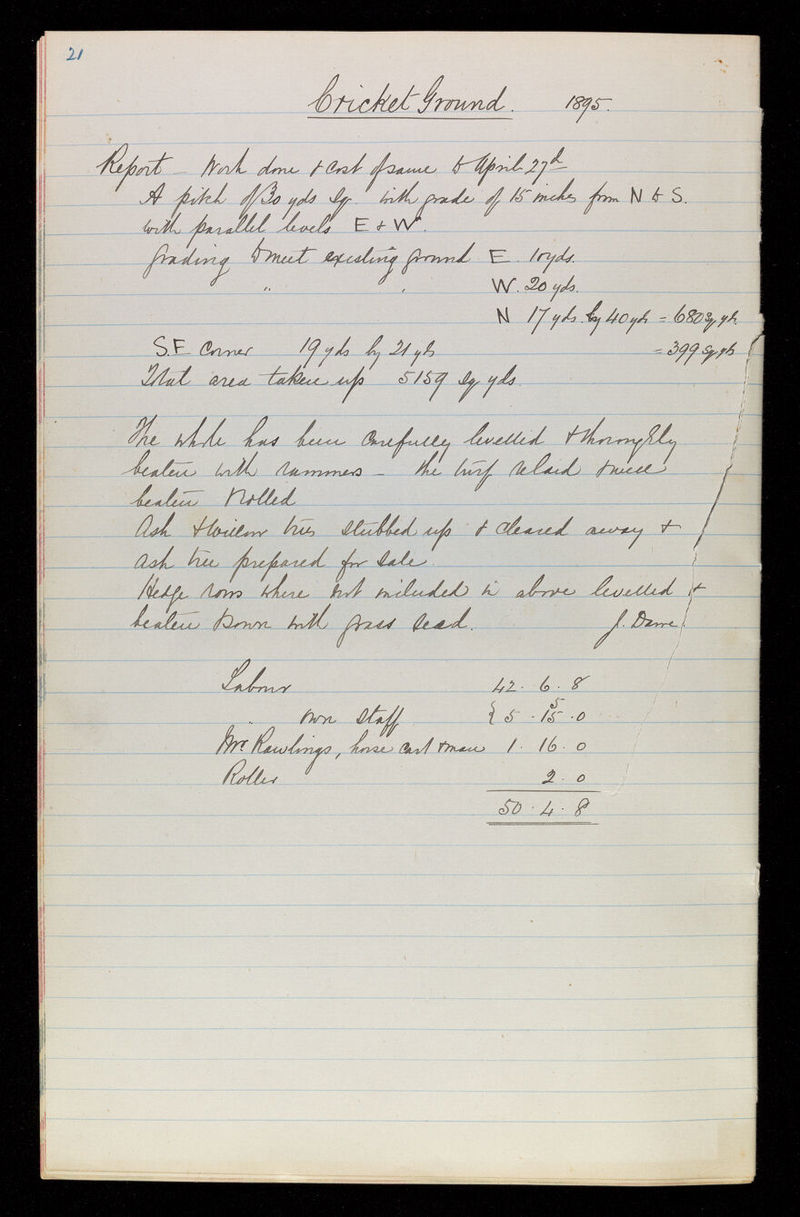 21
Cricket Ground. 1895.
Report - Work done & cost of same to April 27th
A pitch of 30 yds sq. with grade of 15 inches from N to S.
with parallel levels E & W.
Grading to meet existing ground E. 10 yds.
" " W. 20 yds.
N 17 yds. by 40 yds = 680 sq yds.
S.E. Corner 19 yds by 21 yds = 399 sq yds
Total area taken up 5159 sq yds.
The whole has been carefully levelled & thoroughly
beaten with rammers - the turf relaid & well
beaten & rolled
Ash & Willow trees stubbed up & cleared away &
ash tree prepared for sale.
Hedge rows where not included in above levelled &
beaten & sown with grass seed. J. Dawe
Labour 42. 6. 8
" own staff { 5 . 15 . 0
5
Mr. Rawlings, horse cart & man 1. 16. 0
Roller 2. 0
50. 4. 8